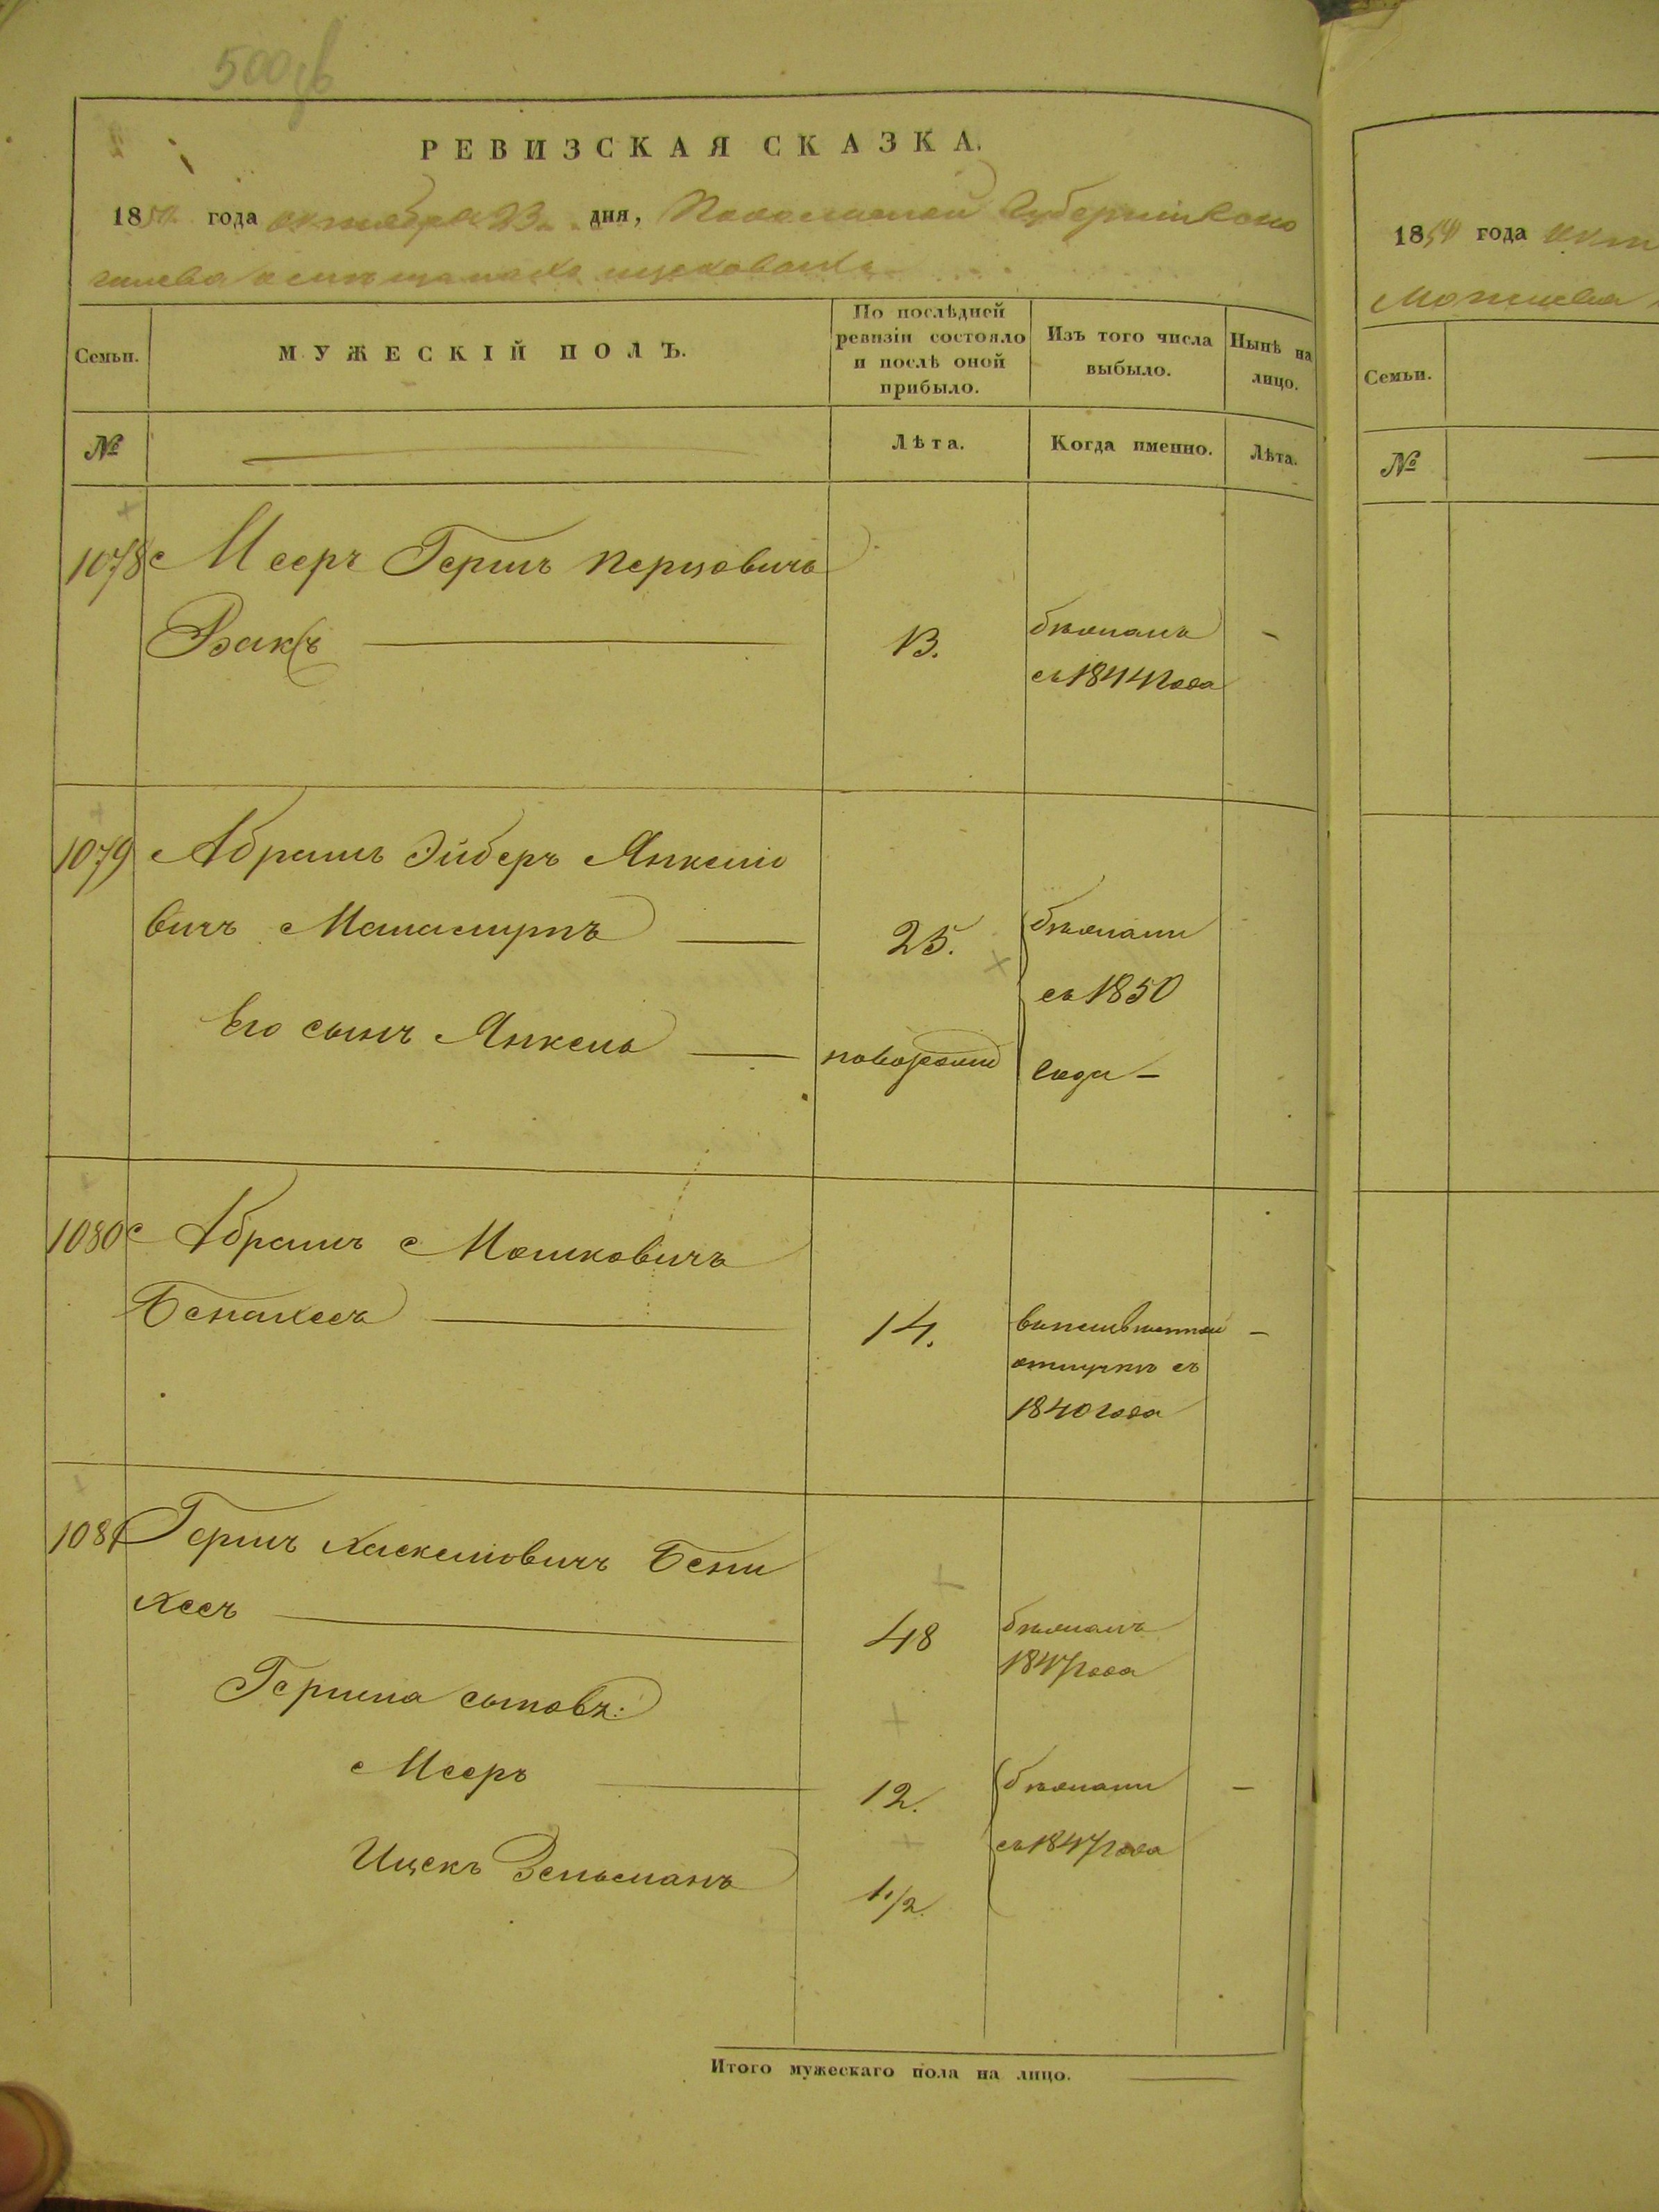 РЕВИЗСКАЯ СКАЗКА.
1850 года октября 23 дня, Подольской Губерніи
Семьи.
МУЖЕСКІЙ ПОЛЪ.
По послѣдней ревизіи состояло и послѣ оной прибыло.
Изъ того числа выбыло.
Нынѣ на лицо.
№
Лѣта.
Когда именно.
Лѣта.
1078 Мееръ Гершъ Перцовичъ
13. бѣжалъ -
съ 1844 года
1079 Абрамъ Эйберъ Янкелио
вичъ 25. бѣжали
съ 1850
Его сынъ Янкель новорожд
года -
1080 Абрамъ Мошковичъ
14. -
отлучкѣ съ
1840 года
1081 Гершъ Хаскелиовичъ Бени
хесъ 48 бѣжалъ
1847 года
Гершка сыновъя:
Мееръ 12. бѣжали -
съ 1847 года
Ицекъ Зельманъ 1 1/2.
Итого мужескаго пола на лицо.
1850 года окт
Могилева
Семьи.
№